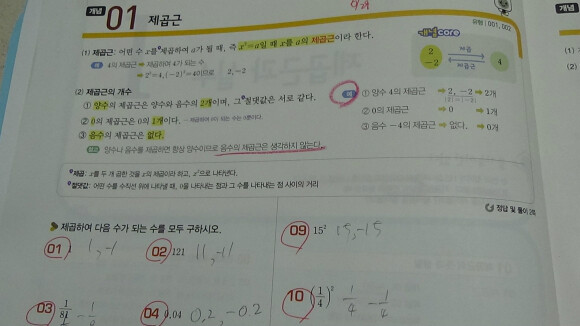 개념 01 제곱근
유형 | 001, 002
(1) 제곱근: 어떤 수 x를 제곱하여 a가 될 때, 즉 x²=a일 때 x를 a의 제곱근이라 한다.
예 4의 제곱근 ➡ 제곱하여 4가 되는 수
➡ 2²=4, (-2)²=4이므로 2, -2
개념core
2
-2
제곱
제곱근
4
(2) 제곱근의 개수
① 양수의 제곱근은 양수와 음수의 2개이며, 그 절댓값은 서로 같다.
② 0의 제곱근은 0의 1개이다.
③ 음수의 제곱근은 없다.
참고 양수나 음수를 제곱하면 항상 양수이므로 음수의 제곱근은 생각하지 않는다.
예 ① 양수 4의 제곱근 ➡ 2, -2 ➡ 2개
|2|=|-2|
② 0의 제곱근 ➡ 0 ➡ 1개
③ 음수 -4의 제곱근 ➡ 없다. ➡ 0개
제곱: x를 두 개 곱한 것을 x의 제곱이라 하고, x²으로 나타낸다.
절댓값: 어떤 수를 수직선 위에 나타낼 때, 0을 나타내는 점과 그 수를 나타내는 점 사이의 거리
정답 및 풀이 2쪽
제곱하여 다음 수가 되는 수를 모두 구하시오.
01 1 1, -1
02 121 11, -11
03 1/81
04 0.04 0.2, -0.2
09 15² 15, -15
10 (1/4)² 1/4 -1/4